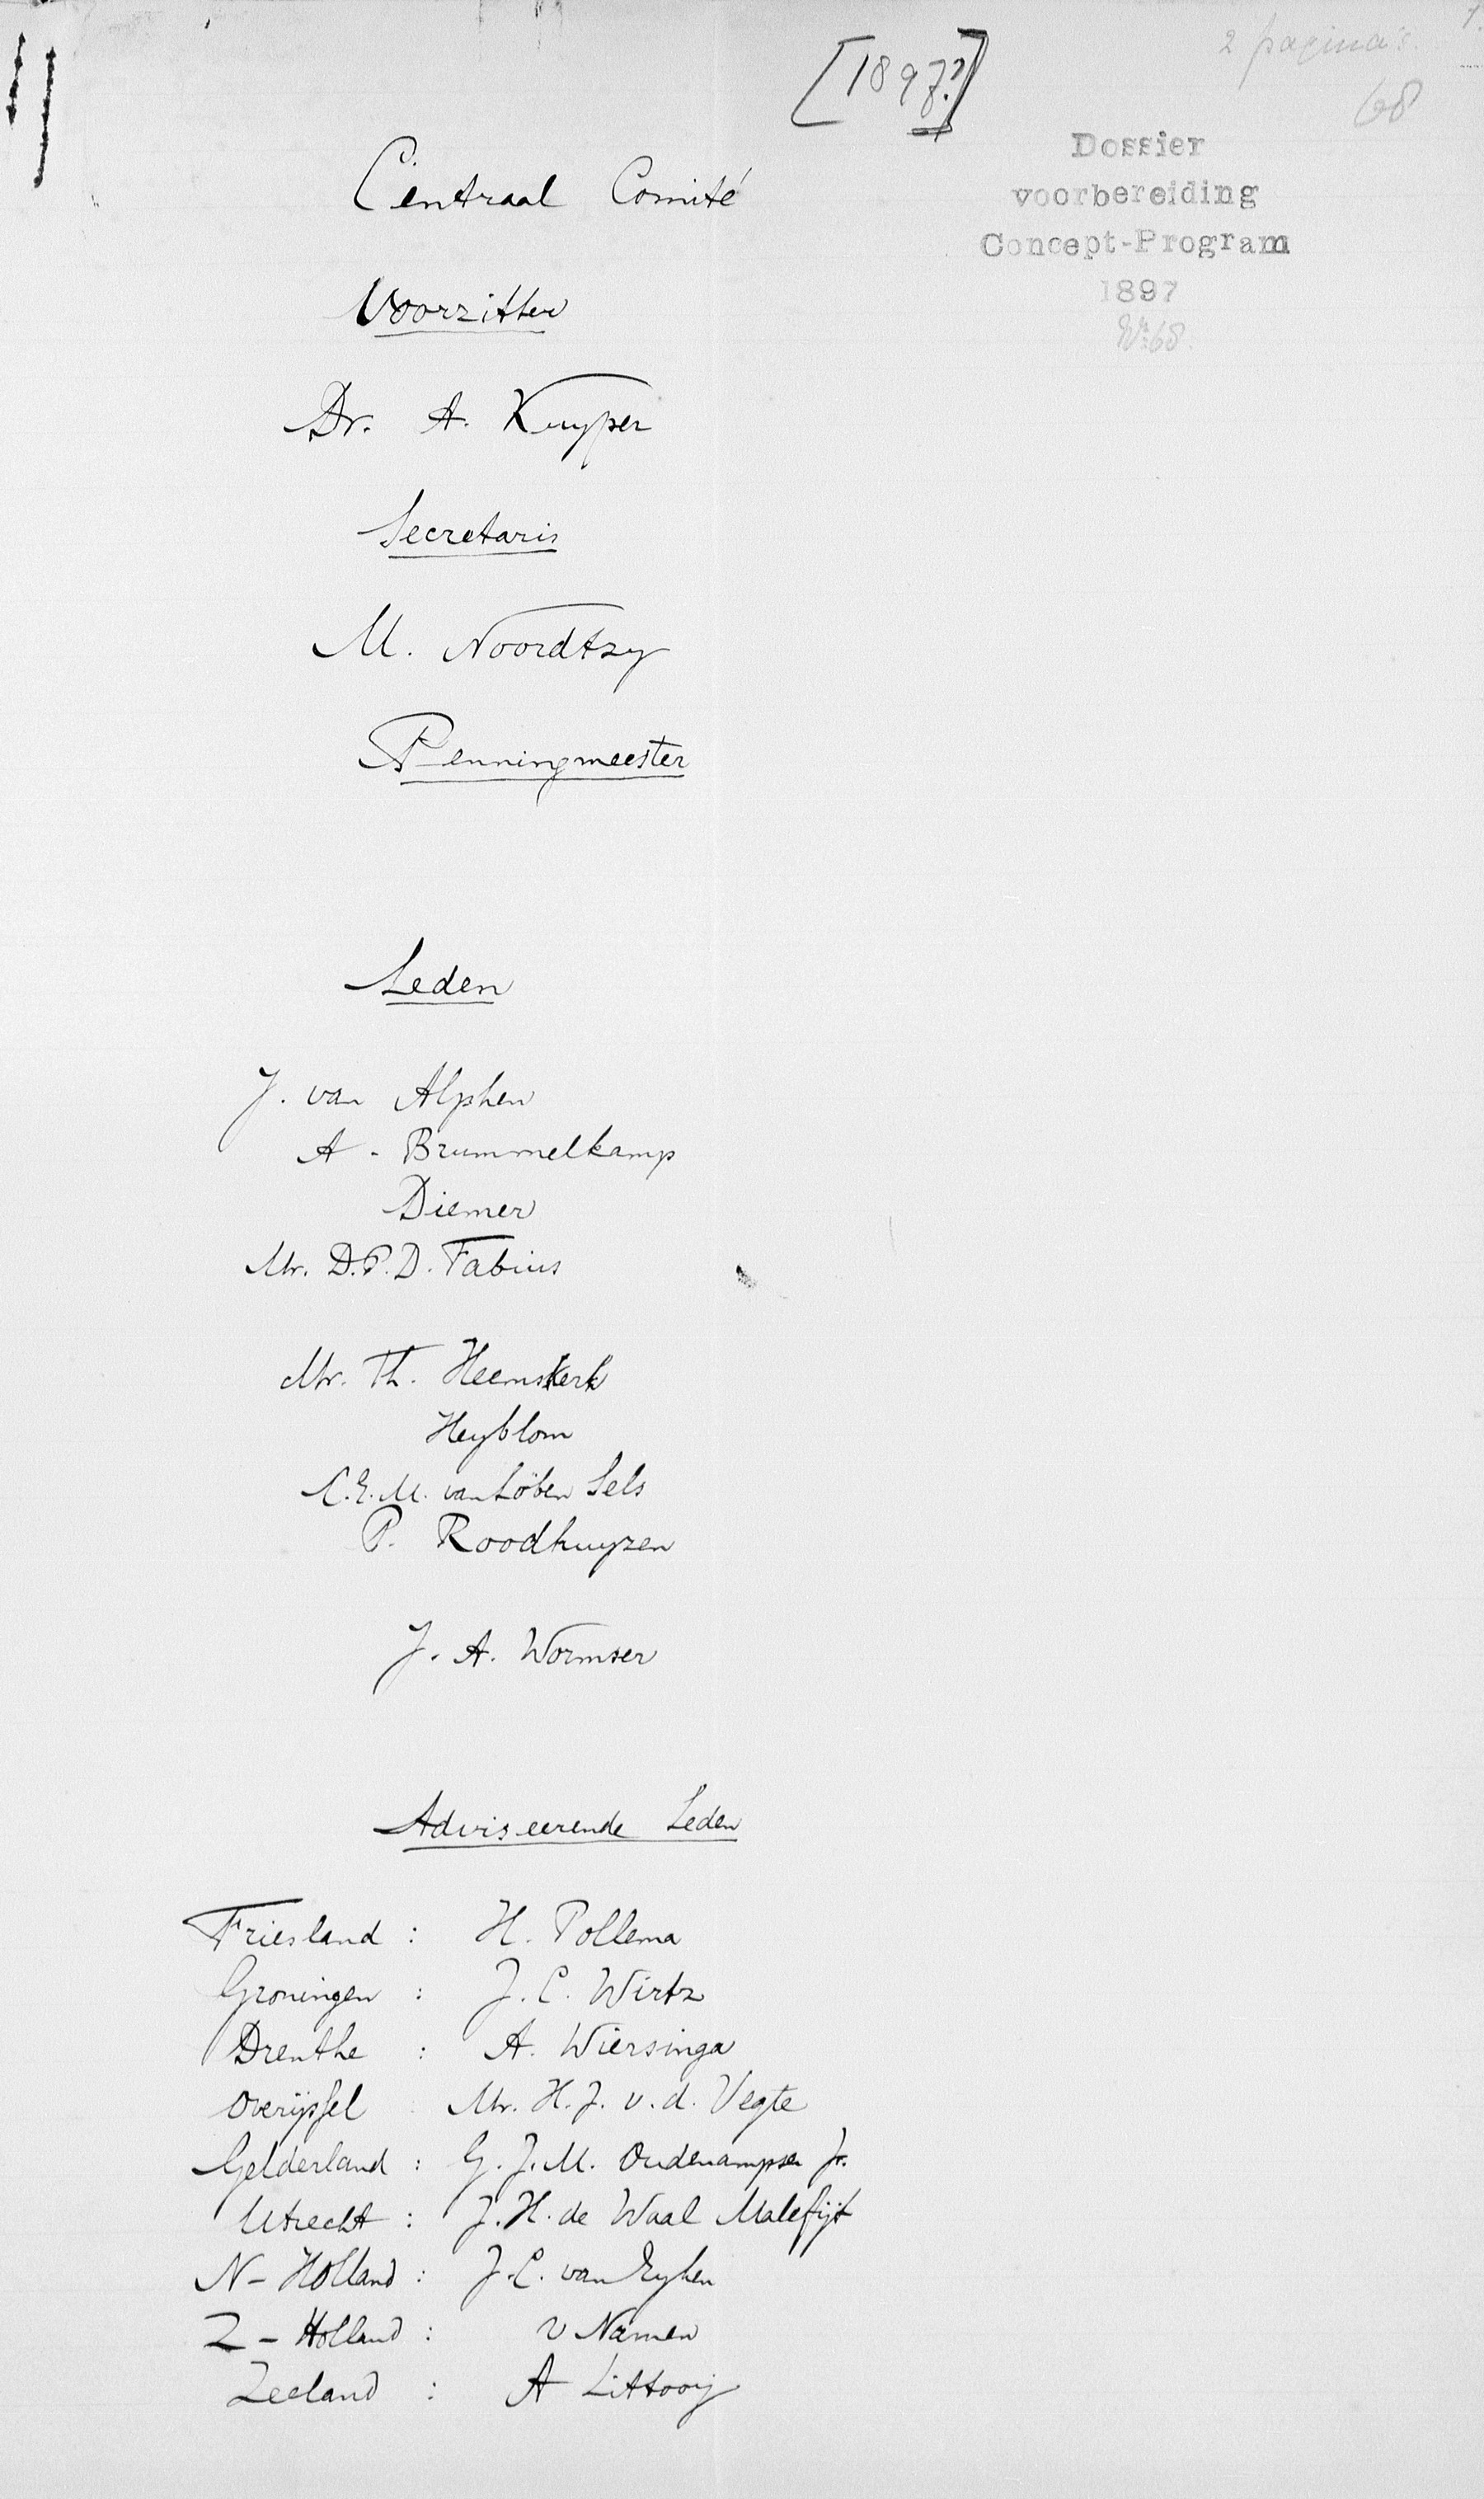 2 pagina's.
1.
[1897?]
68
Dossier
voorbereiding
Concept-Program
1897
No. 68.
Centraal Comité
Voorzitter
Dr. A. Kuyper
Secretaris
M. Noordtzy
Penningmeester
Leden
J. van Alphen
A. Brummelkamp
Diemer
Mr. D.P.D. Fabius
Mr. Th. Heemskerk
Heyblom
M. van Löben Sels
P. Roodhuyzen
J. A. Wormser
Adviseerende Leden
Friesland : H. Pollema
Groningen : J. C. Wirtz
Drenthe : A. Wiersinga
Overijssel Mr. H. J. v. d. Vegte
Gelderland : G. J. M. Oudenampsen Jr.
Utrecht : J. H. de Waal Malefijt
N - Holland : J. C. van Eyken
Z - Holland : v Namen
Zeeland : A Littooij